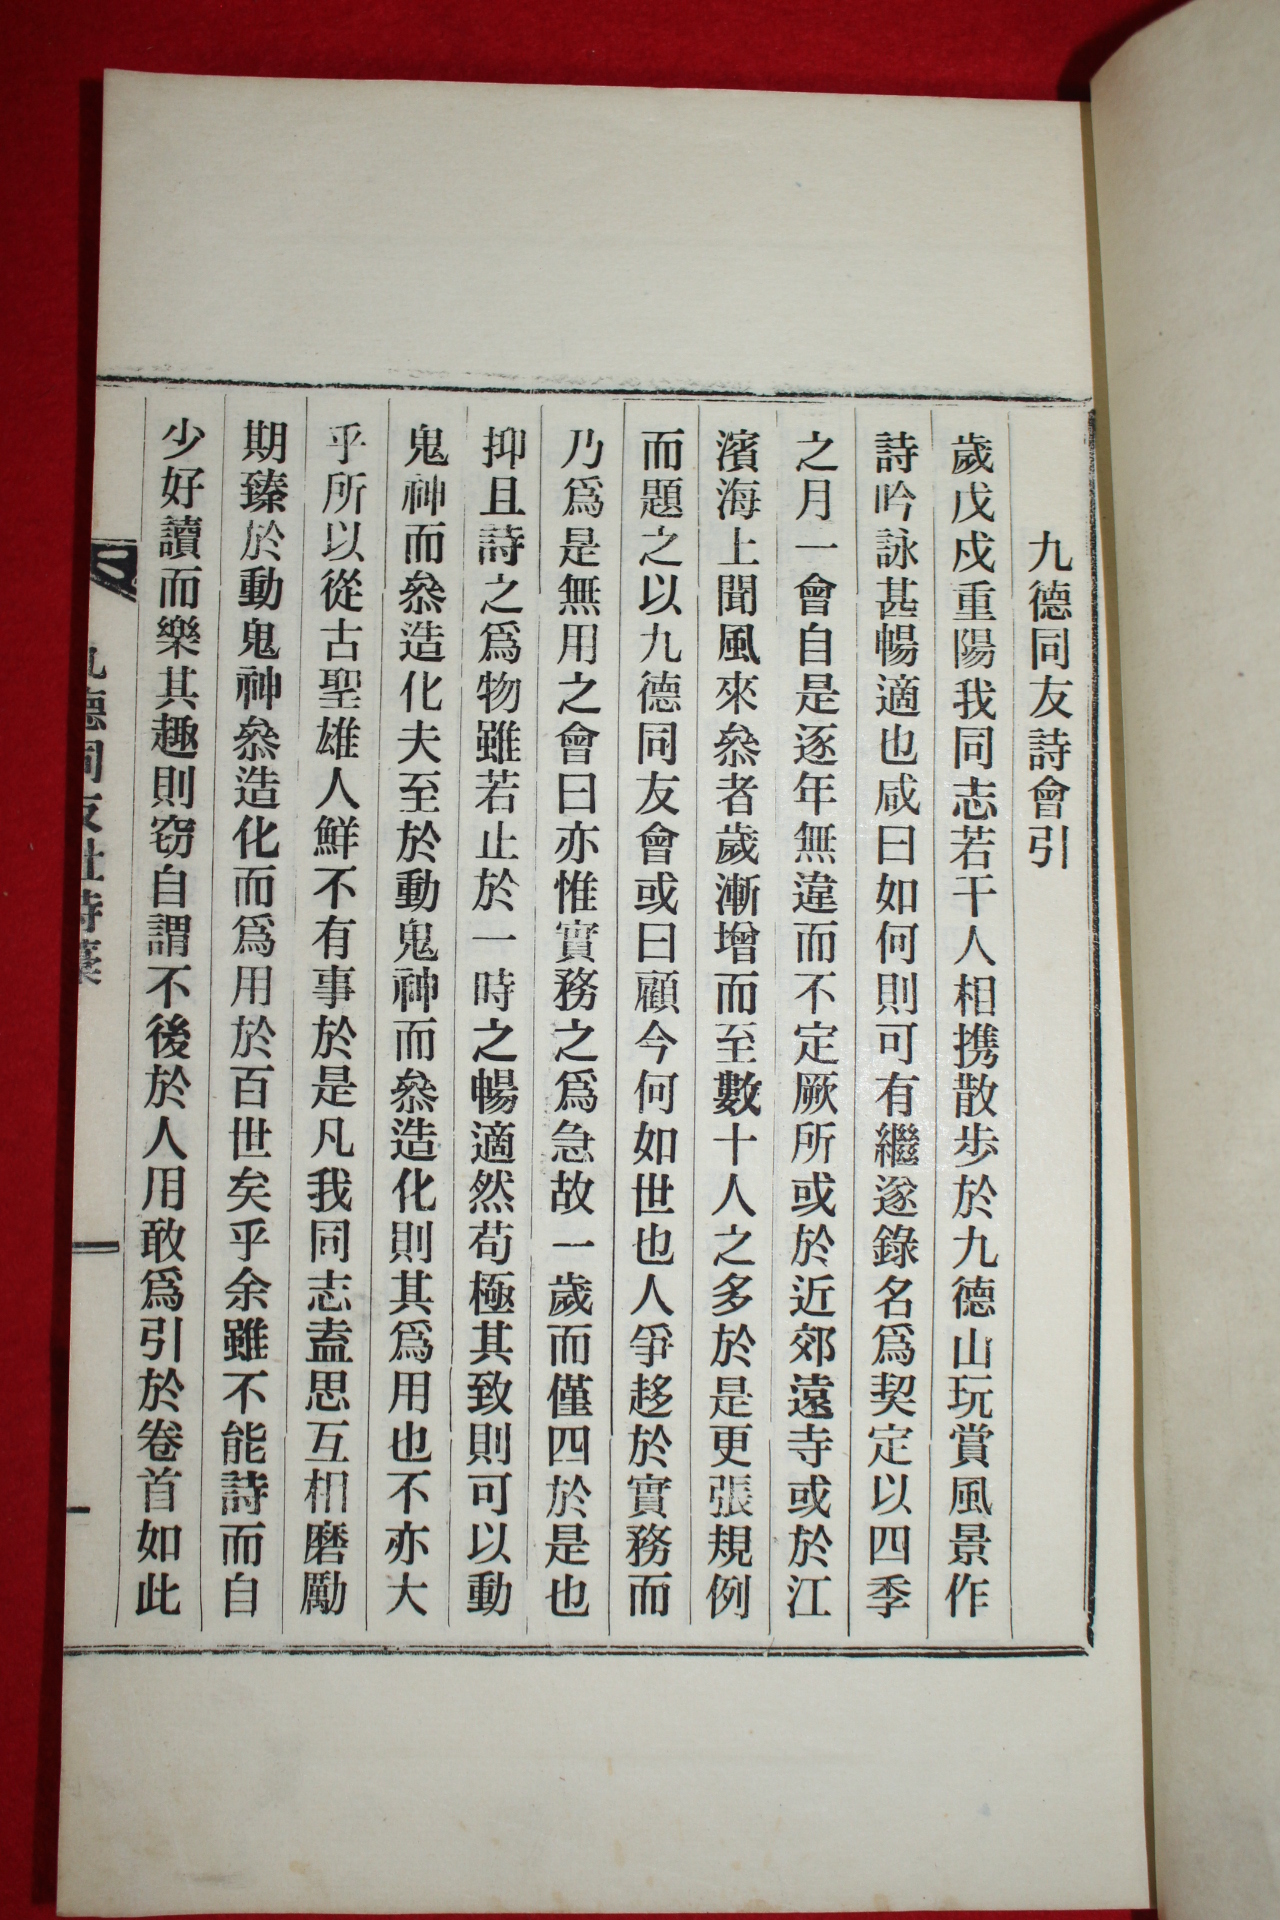 九德同友詩會引
歲戊戍重陽我同志若干人相携散步於九德山玩賞風景作
詩吟詠甚暢適也咸曰如何則可有繼遂錄名爲契定以四季
之月一會自是逐年無違而不定厥所或於近郊遠寺或於江
濱海上聞風來叅者歲漸增而至數十人之多於是更張規例
而題之以九德同友會或曰顧今何如世也人爭趍於實務而
乃爲是無用之會曰亦惟實務之爲急故一歲而僅四於是也
抑且詩之爲物雖若止於一時之暢適然苟極其致則可以動
鬼神而叅造化夫至於動鬼神而叅造化則其爲用也不亦大
乎所以從古聖雄人鮮不有事於是凡我同志盍思互相磨勵
期臻於動鬼神叅造化而爲用於百世矣乎余雖不能詩而自
少好讀而樂其趣則窃自謂不後於人用敢爲引於卷首如此
九德同友社詩稾